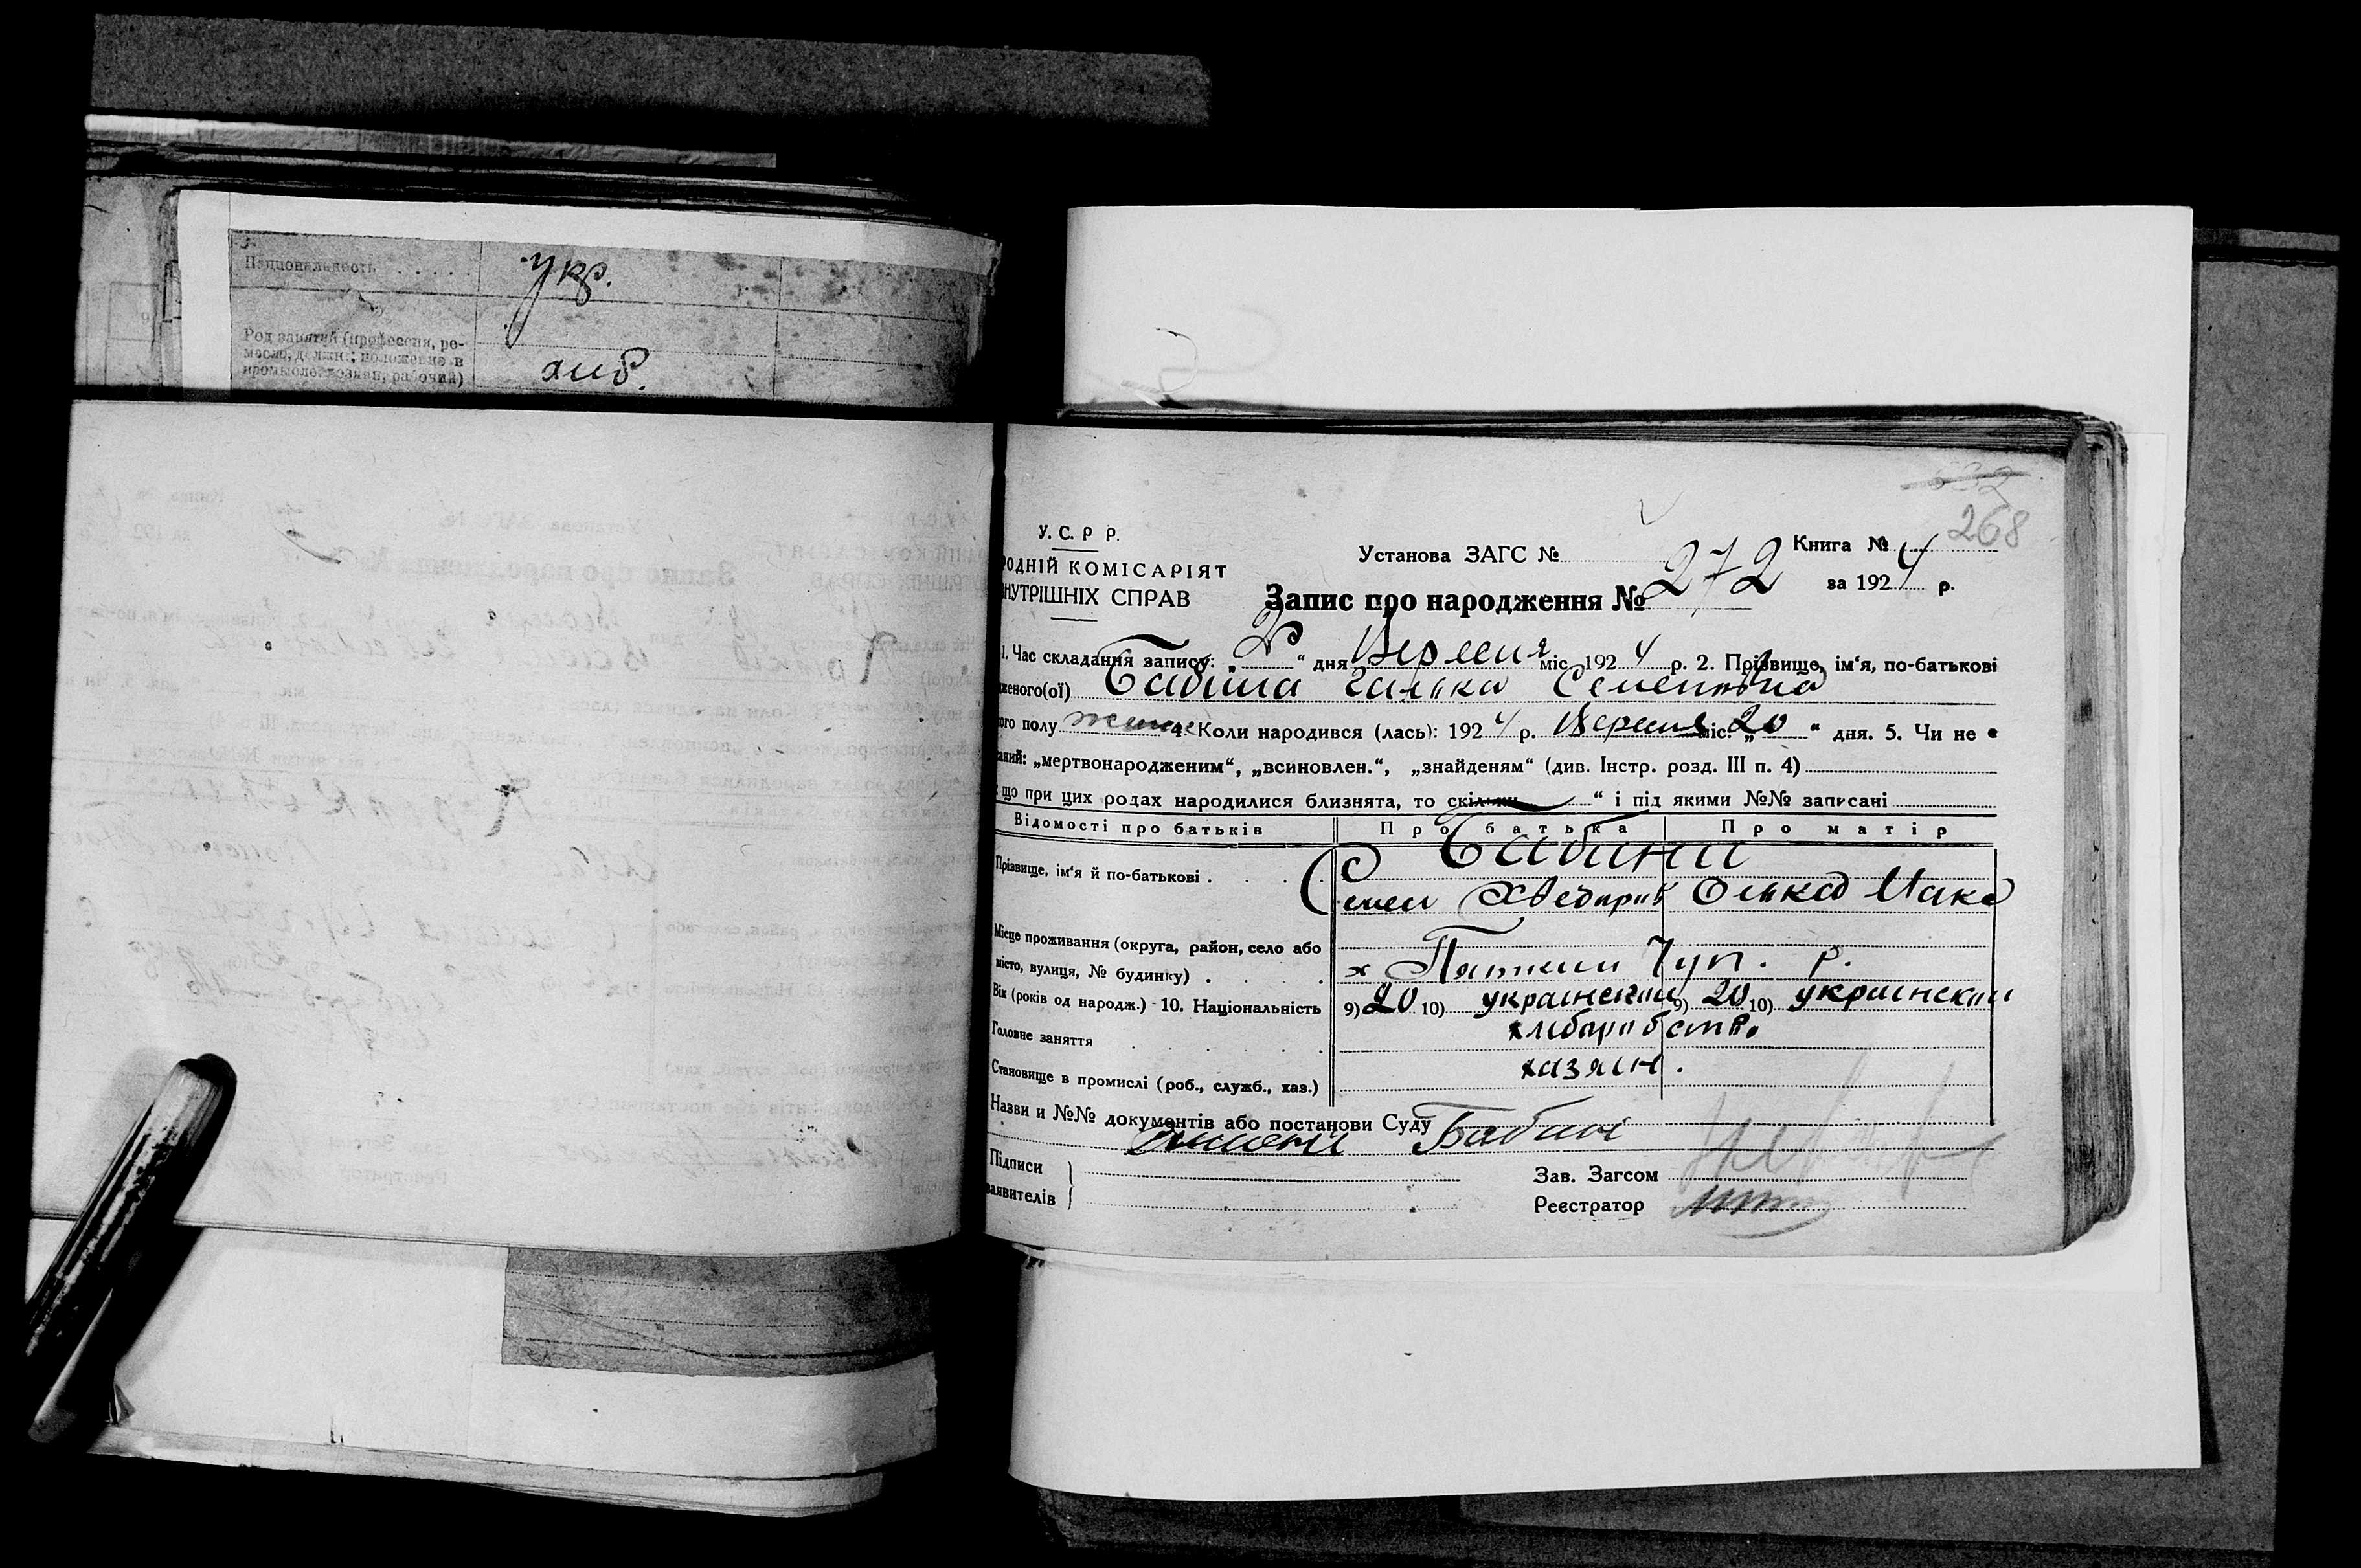 Национальность . . . . . укр.
Род занятий (профессия, ре-
месло, должн.; положение в
промысле: хозяин, рабочий) хиб.
268
У. С. Р Р.
Установа ЗАГС №
Книга №
РОДНІЙ КОМІСАРІЯТ
за 1924 р.
НУТРІШНІХ СПРАВ
Запис про народження № 272
1. Час складання запису: „ “ дня Вересня міс. 1924 р. 2. Прізвище, ім‘я, по-батькові
женого(ої) Бабина Галька Семеновна
ого полу жіноч 4. Коли народився (лась): 1924 р. Вересня міс. „20“ дня. 5. Чи не є
аний: „мертвонародженим“, „всиновлен.“, „знайденям“ (див. Інстр. розд. III п. 4)
що при цих родах народилися близнята, то скільки “ і під якими №№ записані
Відомості про батьків Про батька Про матір
Бабини
Прізвище, ім‘я й по-батькові . . .
Семен Хведорив Олька Мака
Місце проживання (округа, район, село або
місто, вулиця, № будинку) . . х Пяткии Чуп. р.
Вік (років од народж.) - 10. Національність 9) 20 10) украинский 9) 20 10) украинский
Головне заняття хлиборобство
Становище в промислі (роб., служб., хаз.) хазяин.
Назви и №№ документів або постанови Суду
Бабині
Підписи
заявителів
Зав. Загсом
Реєстратор